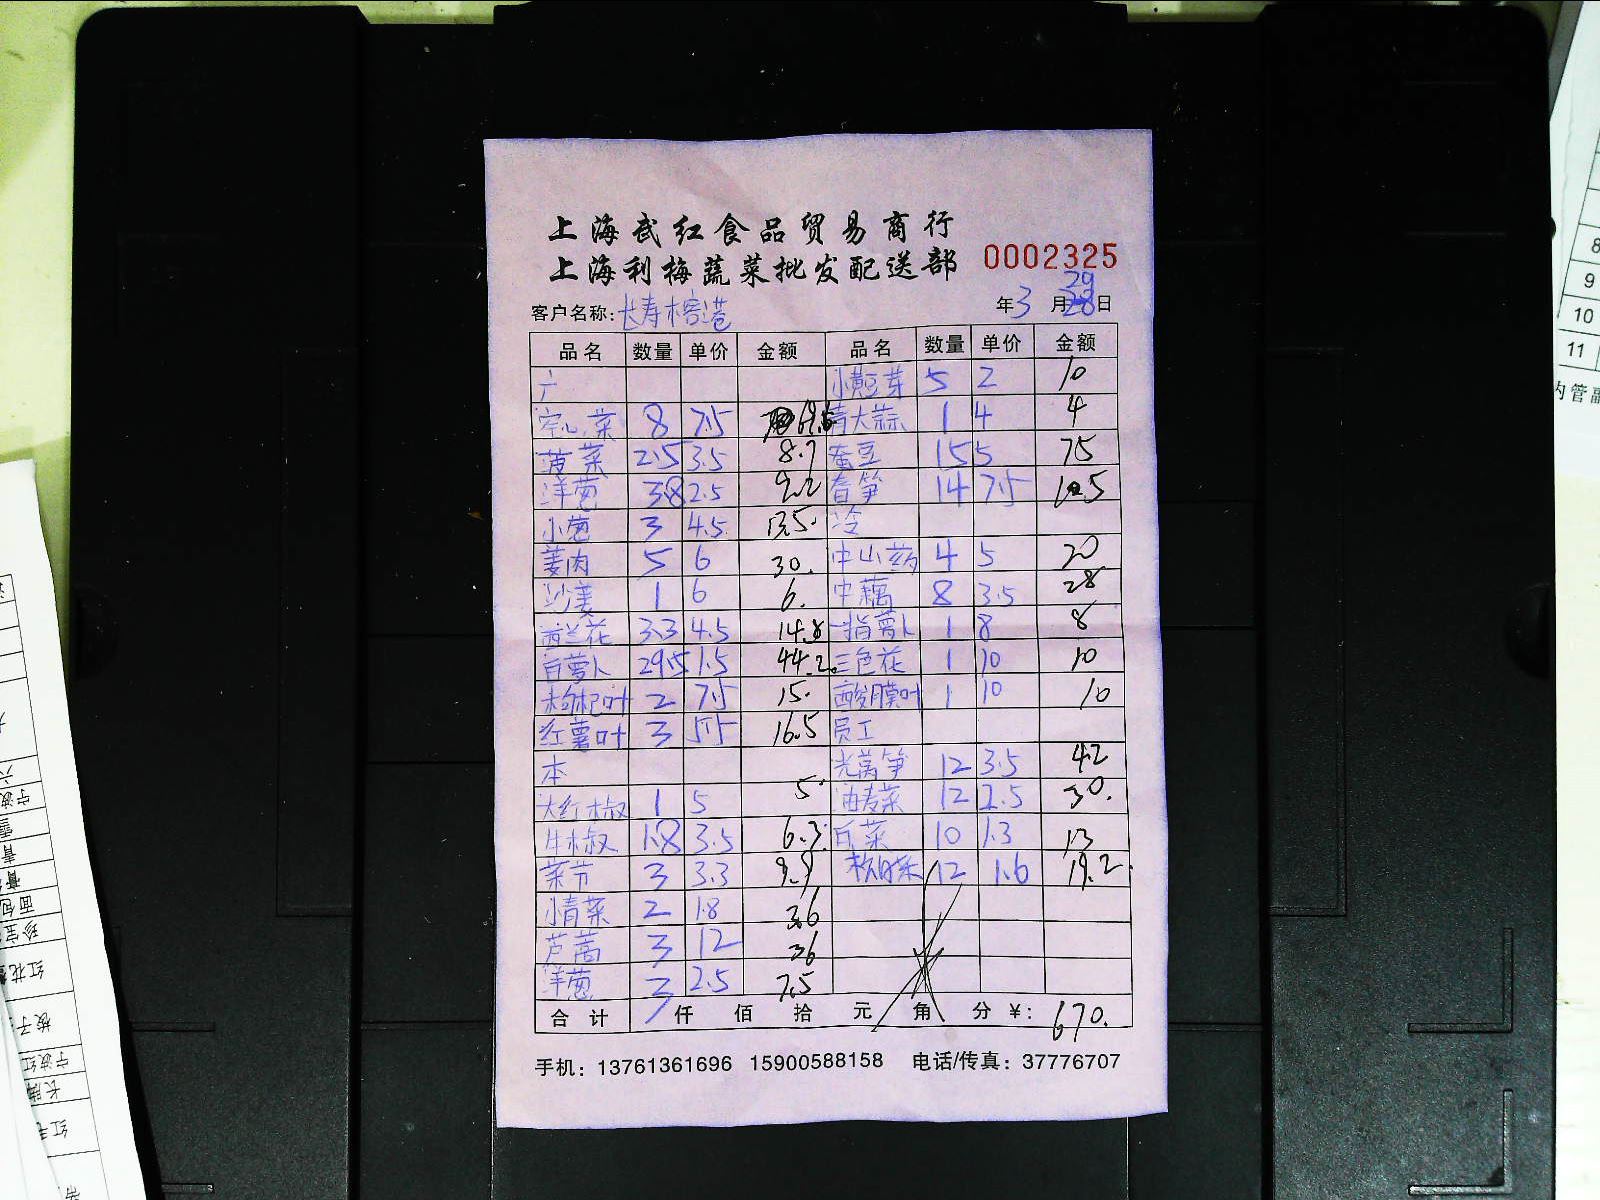 上海武红食品贸易商行
上海利梅蔬菜批发配送部 0002325
客户名称:长寿榕港 年3月29日
品名 数量 单价 金额 品名 数量 单价 金额
广 小黄豆芽 5 2 10
空心菜 8 7.5 青大蒜 1 4 4
菠菜 2.5 3.5 8.7 蚕豆 15 5 75
洋葱 3.8 2.5 9.2 春笋 14 7.5 105
小葱 3 4.5 13.5 冷
姜肉 5 6 30. 中山药 4 5 20
沙姜 1 6 6. 中藕 8 3.5 28
西兰花 3.3 4.5 14.8 一指萝卜 1 8 8
白萝卜 29.5 1.5 44.2 三色花 1 10 10
枸杞叶 2 7.5 15. 酸膜叶 1 10 10
红薯叶 3 5.5 16.5 员工
本 光莴笋 12 3.5 42
大红椒 1 5 5 油麦菜 12 2.5 30.
牛椒 1.8 3.5 6.3 白菜 10 1.3 13
菜节 3 3.3 9.9 12 1.6 19.2
小青菜 2 1.8 3.6
芦蒿 3 12 36
洋葱 3 2.5 7.5
合计 仟 佰 拾 元 角 分 ¥: 670.
手机: 13761361696 15900588158 电话/传真: 37776707
8
9
10
11
内管副